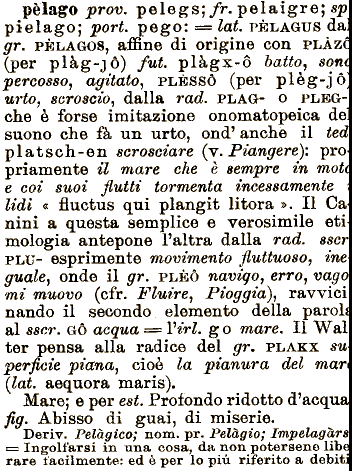 pèlago prov. pelegs; fr. pelaigre; sp
pielago; port. pego: = lat. PÈLAGUS da
gr. PÈLAGOS, affine di origine con PLÀZÔ
(per plàg-jô) fut. plàgx-ô batto, sono
percosso, agitato, PLÈSSÔ (per plèg-jô)
urto, scroscio, dalla rad. PLAG- O PLEG-
che è forse imitazione onomatopeica del
suono che fà un urto, ond' anche il ted
platsch-en scrosciare (v. Piangere): pro-
priamente il mare che è sempre in moto
e coi suoi flutti tormenta incessamente
lidi « fluctus qui plangit litora ». Il Ca-
nini a questa semplice e verosimile eti-
mologia antepone l'altra dalla rad. sscr
PLU- esprimente movimento fluttuoso, ine-
guale, onde il gr. PLÈÔ navigo, erro, vago
mi muovo (cfr. Fluire, Pioggia), ravvici
nando il secondo elemento della parola
al sscr. GÔ acqua = l'irl. go mare. Il Wal
ter pensa alla radice del gr. PLAKX su
perficie piana, cioè la pianura del mar
(lat. aequora maris).
Mare; e per est. Profondo ridotto d'acqua
fig. Abisso di guai, di miserie.
Deriv. Pelàgico; nom. pr. Pelàgio; Impelagàrs
= Ingolfarsi in una cosa, da non potersene libe
rare facilmente: ed è per lo più riferito a debiti